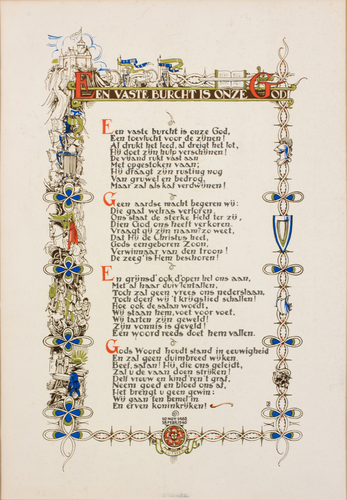 EEN VASTE BURCHT IS ONZE GOD
Een vaste burcht is onze God,
Een toevlucht voor de zijnen!
Al drukt het leed, al dreigt het lot,
Hij doet zijn hulp verschijnen!
De vijand rukt vast aan
Met opgestoken vaan;
Hij draagt zijn rusting nog
Van gruwel en bedrog,
Maar zal als kaf verdwijnen!
Geen aardse macht begeren wij:
Die gaat welras verloren.
Ons staat de sterke Held ter zij,
Dien God ons heeft verkoren.
Vraagt gij zijn naam? zo weet,
Dat Hij de Christus heet,
Gods eengeboren Zoon,
Verwinnaar van den troon!
De zeeg' is Hem beschoren!
En grijnsd' ook d'open hel ons aan,
Met al haar duiz'tentallen,
Toch zal geen vrees ons nederslaan,
Toch doen wij 't krijgslied schallen!
Hoe ook de satan woedt,
Wij staan hem, voet voor voet,
Wij tarten zijn geweld!
Zijn vonnis is geveld!
Een woord reeds doet hem vallen.
Gods Woord houdt stand in eeuwigheid
En zal geen duimbreed wijken.
Beef, satan! Hij, die ons geleidt,
Zal u de vaan doen strijken!
Delf vrouw en kind'ren 't graf,
Neem goed en bloed ons af,
Het brengt u geen gewin:
Wij gaan ten hemel in
En erven koninkrijken!
10 NOV 1483
18 FEBR 1546